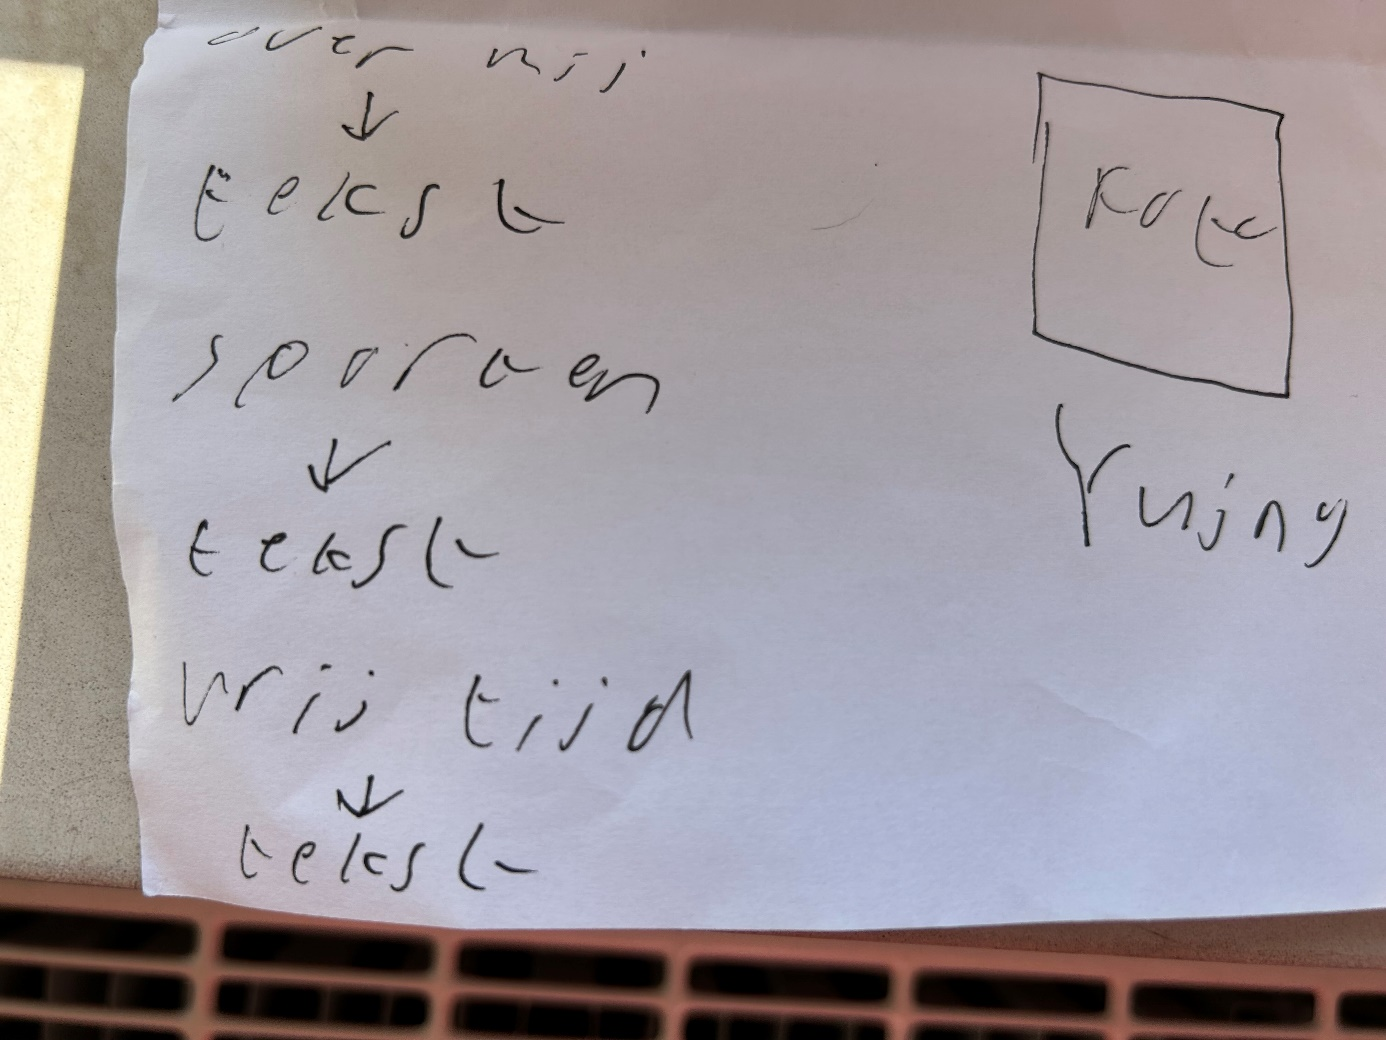 over mij
tekst
sporten
tekst
vrij tijd
tekst
Yujng